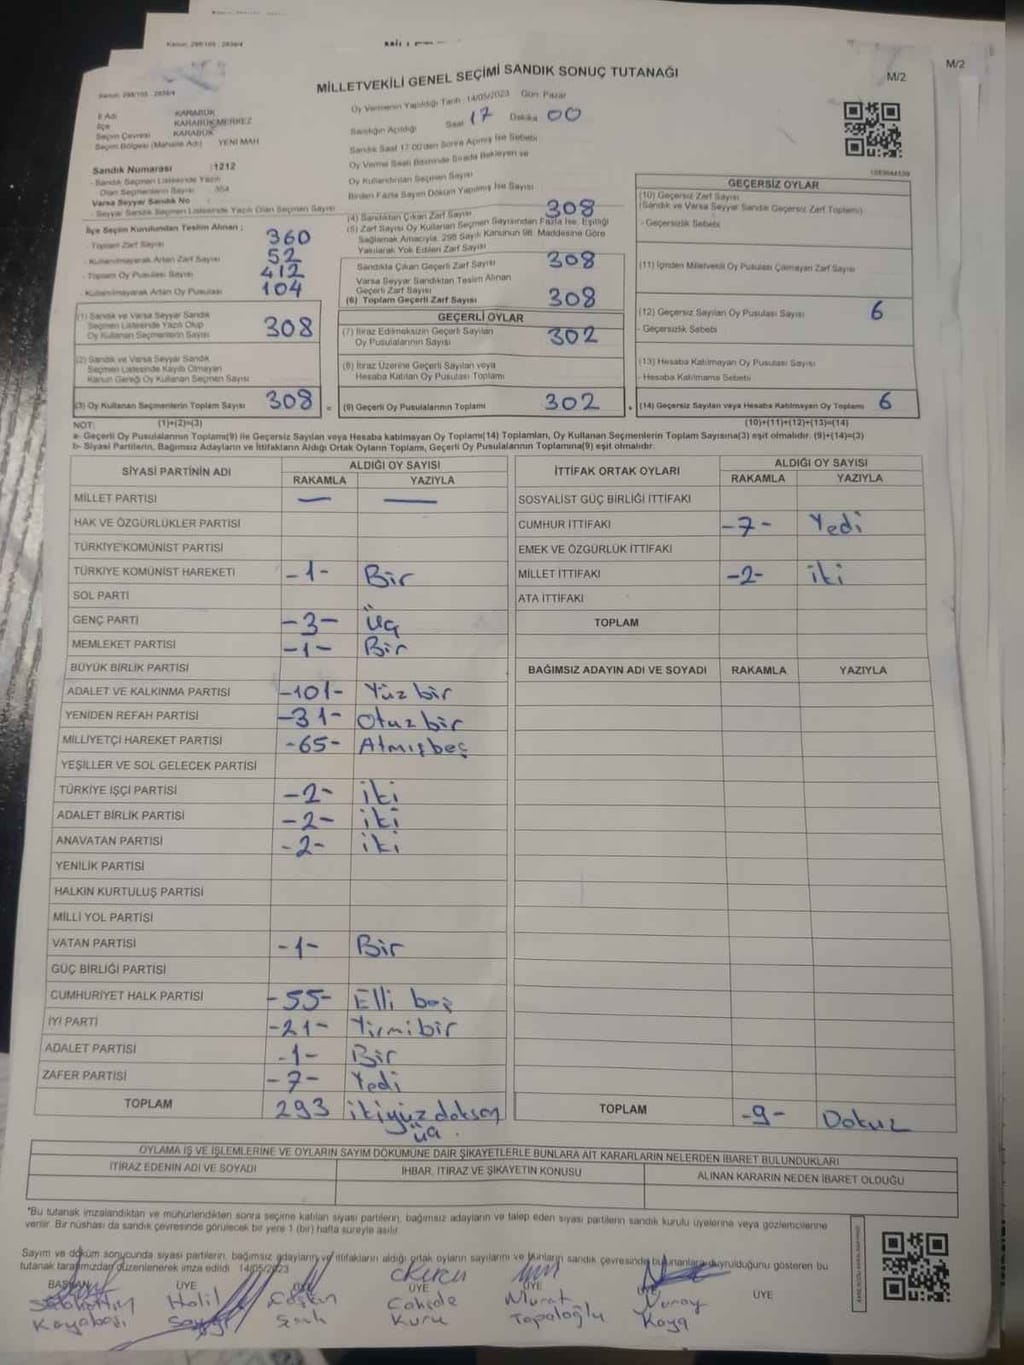 Kanun: 298/105 : 2839/4
M/2
M/2
MİLLETVEKİLİ GENEL SEÇİMİ SANDIK SONUÇ TUTANAĞI
İl Adı KARABÜK
İlçe KARABÜK MERKEZ
Seçim Çevresi KARABÜK
Seçim Bölgesi (Mahalle Adı) YENİ MAH
Sandık Numarası :1212
- Sandık Seçmen Listesinde Yazılı
Olan Seçmenlerin Sayısı
Varsa Seyyar Sandık No
- Seyyar Sandık Seçmen Listesinde Yazılı Olan Seçmen Sayısı
Oy Vermenin Yapıldığı Tarih :14/05/2023 Gün: Pazar
Sandığın Açıldığı Saat 17 Dakika 00
Sandık Saat 17:00'den Sonra Açılmış İse Sebebi
Oy Verme Saati Bitiminde Sırada Bekleyen ve
Oy Kullandırılan Seçmen Sayısı
Birden Fazla Sayım Döküm Yapılmış İse Sayısı
İlçe Seçim Kurulundan Teslim Alınan ;
- Toplam Zarf Sayısı 360
- Kullanılmayarak Artan Zarf Sayısı 52
- Toplam Oy Pusulası Sayısı 412
- Kullanılmayarak Artan Oy Pusulası 104
(1) Sandık ve Varsa Seyyar Sandık
Seçmen Listesinde Yazılı Olup
Oy Kullanan Seçmenlerin Sayısı 308
(2) Sandık ve Varsa Seyyar Sandık
Seçmen Listesinde Kayıtlı Olmayan
Kanun Gereği Oy Kullanan Seçmen Sayısı
(3) Oy Kullanan Seçmenlerin Toplam Sayısı 308 =
(4) Sandıktan Çıkan Zarf Sayısı 308
(5) Zarf Sayısı Oy Kullanan Seçmen Sayısından Fazla İse, Eşitliği
Sağlamak Amacıyla, 298 Sayılı Kanunun 98. Maddesine Göre
Yakılarak Yok Edilen Zarf Sayısı
Sandıkta Çıkan Geçerli Zarf Sayısı 308
Varsa Seyyar Sandıktan Teslim Alınan
Geçerli Zarf Sayısı
(6) Toplam Geçerli Zarf Sayısı 308
GEÇERLİ OYLAR
(7) İtiraz Edilmeksizin Geçerli Sayılan
Oy Pusulalarının Sayısı 302
(8) İtiraz Üzerine Geçerli Sayılan veya
Hesaba Katılan Oy Pusulası Toplamı
(9) Geçerli Oy Pusulalarının Toplamı 302 +
GEÇERSİZ OYLAR
(10) Geçersiz Zarf Sayısı
(Sandık ve Varsa Seyyar Sandık Geçersiz Zarf Toplamı)
- Geçersizlik Sebebi
(11) İçinden Milletvekili Oy Pusulası Çıkmayan Zarf Sayısı
(12) Geçersiz Sayılan Oy Pusulası Sayısı 6
- Geçersizlik Sebebi
(13) Hesaba Katılmayan Oy Pusulası Sayısı
- Hesaba Katılmama Sebebi
(14) Geçersiz Sayılan veya Hesaba Katılmayan Oy Toplamı 6
NOT: (1)+(2)=(3) (10)+(11)+(12)+(13)=(14)
a- Geçerli Oy Pusulalarının Toplamı(9) ile Geçersiz Sayılan veya Hesaba katılmayan Oy Toplamı(14) Toplamları, Oy Kullanan Seçmenlerin Toplam Sayısına(3) eşit olmalıdır. (9)+(14)=(3)
b- Siyasi Partilerin, Bağımsız Adayların ve İttifakların Aldığı Ortak Oyların Toplamı, Geçerli Oy Pusulalarının Toplamına(9) eşit olmalıdır.
SİYASİ PARTİNİN ADI ALDIĞI OY SAYISI
RAKAMLA YAZIYLA
MİLLET PARTİSİ — —
HAK VE ÖZGÜRLÜKLER PARTİSİ
TÜRKİYE KOMÜNİST PARTİSİ
TÜRKİYE KOMÜNİST HAREKETİ -1- Bir
SOL PARTİ
GENÇ PARTİ -3- Üç
MEMLEKET PARTİSİ -1- Bir
BÜYÜK BİRLİK PARTİSİ
ADALET VE KALKINMA PARTİSİ -101- Yüz bir
YENİDEN REFAH PARTİSİ -31- Otuz bir
MİLLİYETÇİ HAREKET PARTİSİ -65- Atmışbeş
YEŞİLLER VE SOL GELECEK PARTİSİ
TÜRKİYE İŞÇİ PARTİSİ -2- iki
ADALET BİRLİK PARTİSİ -2- iki
ANAVATAN PARTİSİ -2- iki
YENİLİK PARTİSİ
HALKIN KURTULUŞ PARTİSİ
MİLLİ YOL PARTİSİ
VATAN PARTİSİ -1- Bir
GÜÇ BİRLİĞİ PARTİSİ
CUMHURİYET HALK PARTİSİ -55- Elli beş
İYİ PARTİ -21- Yirmibir
ADALET PARTİSİ -1- Bir
ZAFER PARTİSİ -7- Yedi
TOPLAM 293 ikiyüz doksan
üç.
İTTİFAK ORTAK OYLARI ALDIĞI OY SAYISI
RAKAMLA YAZIYLA
SOSYALİST GÜÇ BİRLİĞİ İTTİFAKI
CUMHUR İTTİFAKI -7- Yedi
EMEK VE ÖZGÜRLÜK İTTİFAKI
MİLLET İTTİFAKI -2- iki
ATA İTTİFAKI
TOPLAM
BAĞIMSIZ ADAYIN ADI VE SOYADI RAKAMLA YAZIYLA
TOPLAM -9- Dokuz
OYLAMA İŞ VE İŞLEMLERİNE VE OYLARIN SAYIM DÖKÜMÜNE DAİR ŞİKAYETLERLE BUNLARA AİT KARARLARIN NELERDEN İBARET BULUNDUKLARI
İTİRAZ EDENİN ADI VE SOYADI İHBAR, İTİRAZ VE ŞİKAYETİN KONUSU ALINAN KARARIN NEDEN İBARET OLDUĞU
*Bu tutanak imzalandıktan ve mühürlendikten sonra seçime katılan siyasi partilerin, bağımsız adayların ve talep eden siyasi partilerin sandık kurulu üyelerine veya gözlemcilerine
verilir. Bir nüshası da sandık çevresinde görülecek bir yere 1 (bir) hafta süreyle asılır.
Sayım ve döküm sonucunda siyasi partilerin, bağımsız adayların ve ittifakların aldığı ortak oyların sayılarını ve bunların sandık çevresinde bulunanlara duyrulduğunu gösteren bu
tutanak tarafımızdan düzenlenerek imza edildi. 14/05/2023
BAŞKAN ÜYE ÜYE ÜYE ÜYE ÜYE
Halil Cahide Murat Nuray
Kayabaşı Kuru Topaloğlu Kaya